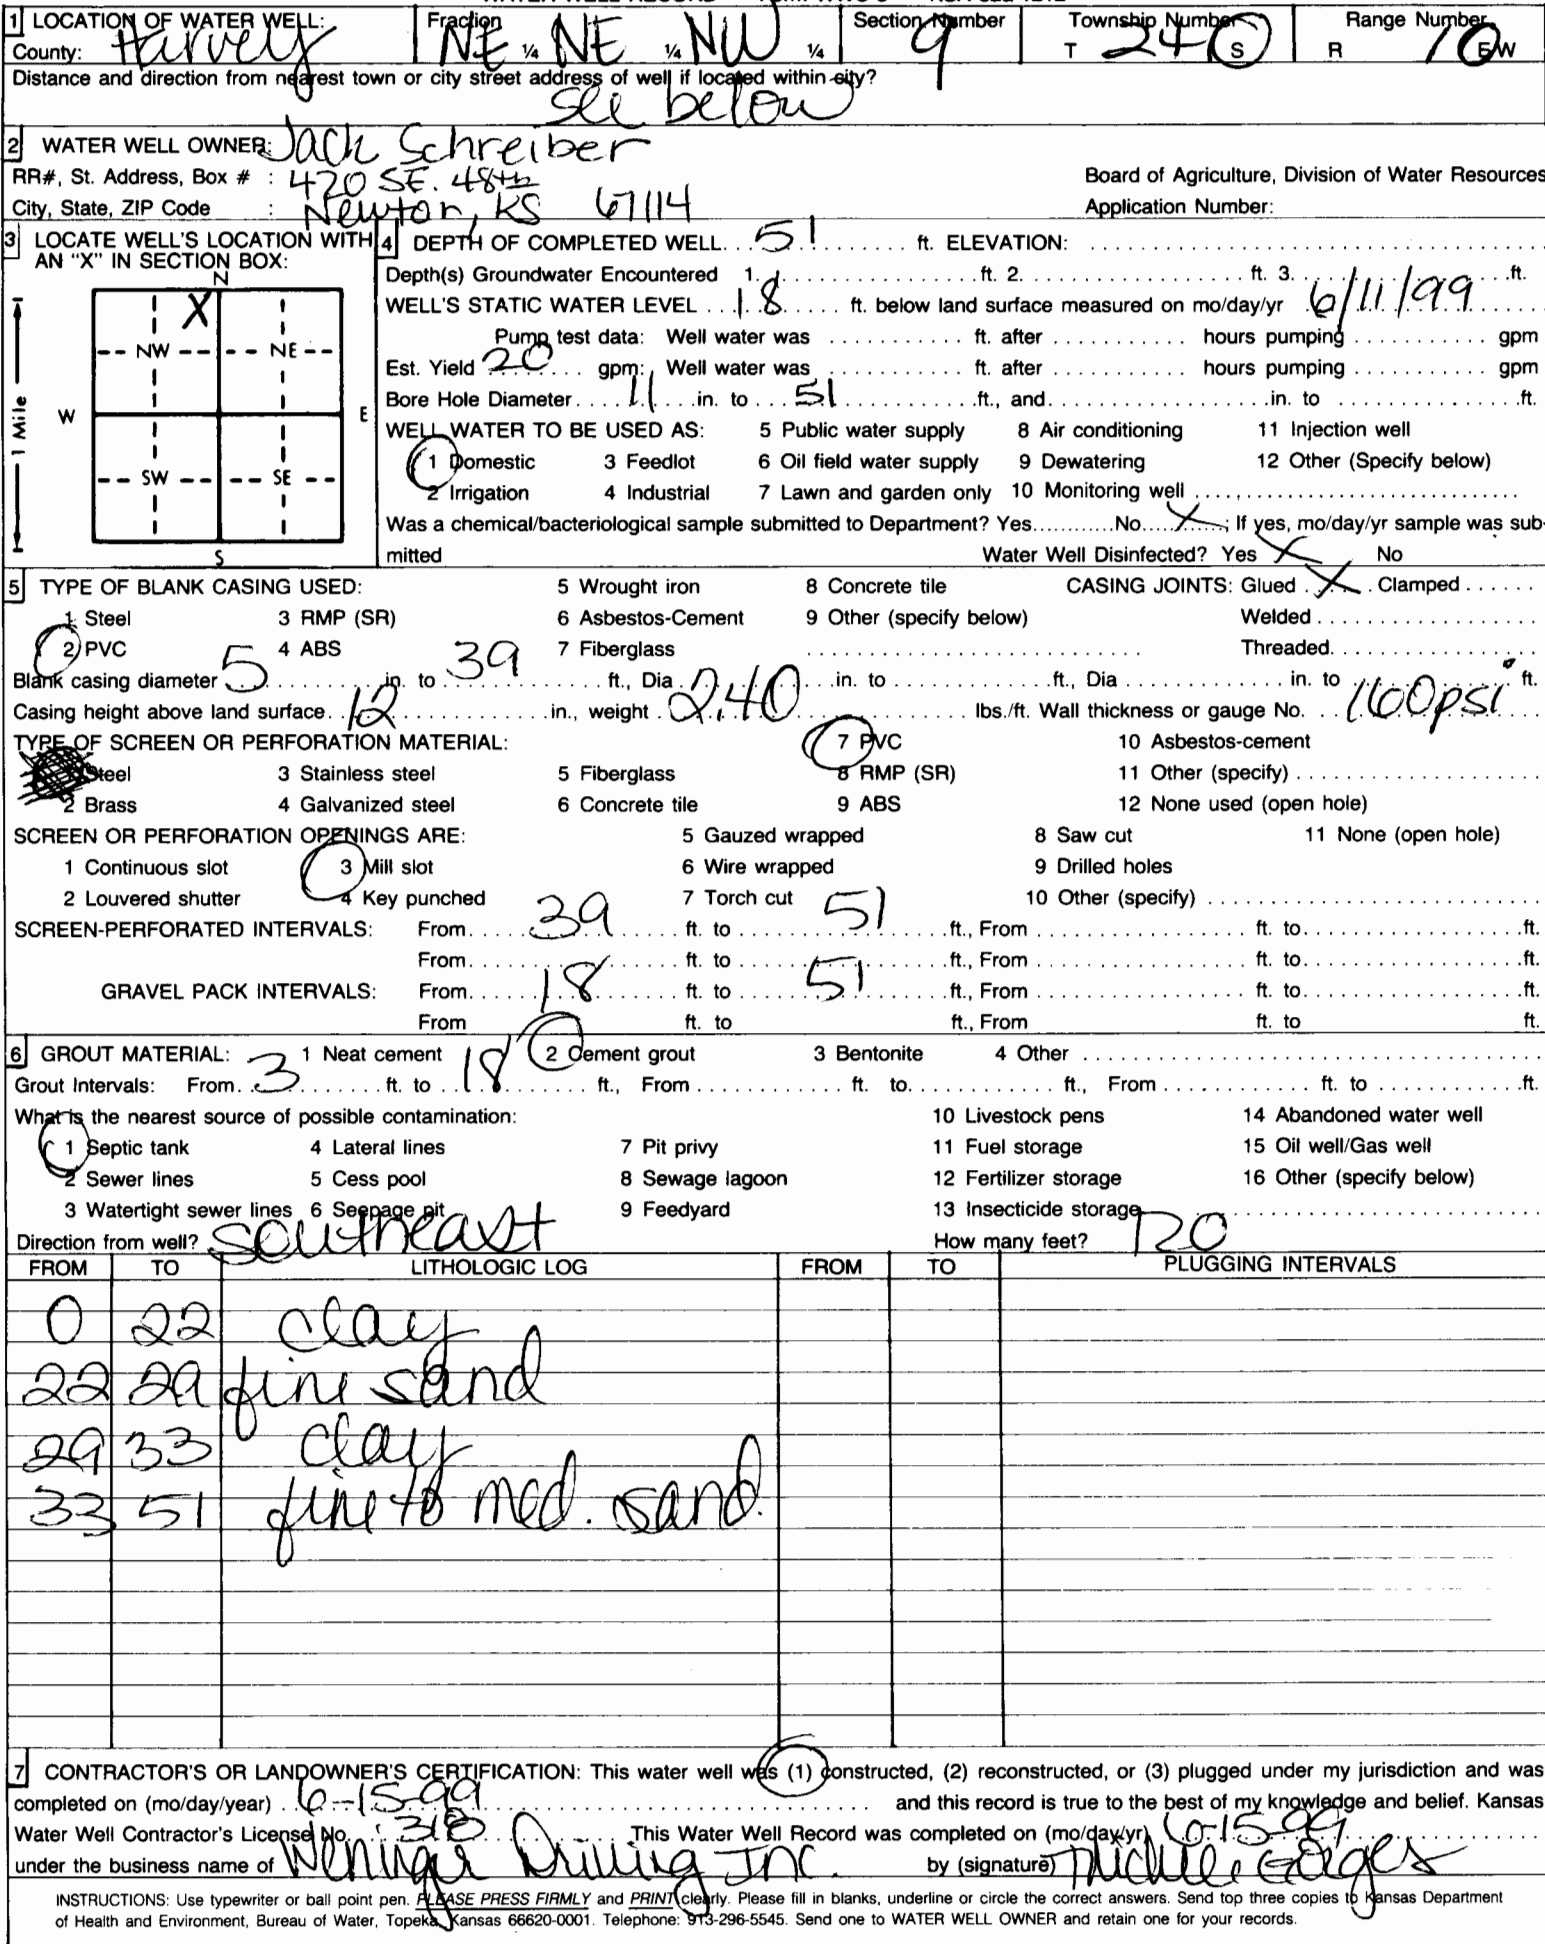 1 LOCATION OF WATER WELL: Fraction Section Number Township Number Range Number
County: Harvey NE ¼ NE ¼ NW ¼ 9 T 24 S R 1 E/W
Distance and direction from nearest town or city street address of well if located within city?
see below
2 WATER WELL OWNER: Jack Schreiber
RR#, St. Address, Box # : 420 SE. 48th Board of Agriculture, Division of Water Resources
City, State, ZIP Code : Newton, KS 67114 Application Number:
3 LOCATE WELL'S LOCATION WITH AN "X" IN SECTION BOX:
N
X
NW NE
W E
SW SE
S
1 Mile
4 DEPTH OF COMPLETED WELL 51 ft. ELEVATION:
Depth(s) Groundwater Encountered 1. ft. 2. ft. 3. ft.
WELL'S STATIC WATER LEVEL 18 ft. below land surface measured on mo/day/yr 6/11/99
Pump test data: Well water was ft. after hours pumping gpm
Est. Yield 20 gpm: Well water was ft. after hours pumping gpm
Bore Hole Diameter 11 in. to 51 ft., and in. to ft.
WELL WATER TO BE USED AS: 5 Public water supply 8 Air conditioning 11 Injection well
1 Domestic 3 Feedlot 6 Oil field water supply 9 Dewatering 12 Other (Specify below)
2 Irrigation 4 Industrial 7 Lawn and garden only 10 Monitoring well
Was a chemical/bacteriological sample submitted to Department? Yes No X; If yes, mo/day/yr sample was sub-
mitted Water Well Disinfected? Yes X No
5 TYPE OF BLANK CASING USED: 5 Wrought iron 8 Concrete tile CASING JOINTS: Glued X Clamped
1 Steel 3 RMP (SR) 6 Asbestos-Cement 9 Other (specify below) Welded
2 PVC 4 ABS 7 Fiberglass Threaded
Blank casing diameter 5 in. to 39 ft., Dia in. to ft., Dia in. to ft.
Casing height above land surface 12 in., weight 2.40 lbs./ft. Wall thickness or gauge No. 160psi
TYPE OF SCREEN OR PERFORATION MATERIAL: 7 PVC 10 Asbestos-cement
Steel 3 Stainless steel 5 Fiberglass 8 RMP (SR) 11 Other (specify)
2 Brass 4 Galvanized steel 6 Concrete tile 9 ABS 12 None used (open hole)
SCREEN OR PERFORATION OPENINGS ARE: 5 Gauzed wrapped 8 Saw cut 11 None (open hole)
1 Continuous slot 3 Mill slot 6 Wire wrapped 9 Drilled holes
2 Louvered shutter 4 Key punched 7 Torch cut 10 Other (specify)
SCREEN-PERFORATED INTERVALS: From 39 ft. to 51 ft., From ft. to ft.
From ft. to ft., From ft. to ft.
GRAVEL PACK INTERVALS: From 18 ft. to 51 ft., From ft. to ft.
From ft. to ft., From ft. to ft.
6 GROUT MATERIAL: 1 Neat cement 2 Cement grout 3 Bentonite 4 Other
Grout Intervals: From 3 ft. to 18 ft., From ft. to ft., From ft. to ft.
What is the nearest source of possible contamination: 10 Livestock pens 14 Abandoned water well
1 Septic tank 4 Lateral lines 7 Pit privy 11 Fuel storage 15 Oil well/Gas well
2 Sewer lines 5 Cess pool 8 Sewage lagoon 12 Fertilizer storage 16 Other (specify below)
3 Watertight sewer lines 6 Seepage pit 9 Feedyard 13 Insecticide storage
Direction from well? southeast How many feet? 120
FROM TO LITHOLOGIC LOG FROM TO PLUGGING INTERVALS
0 22 clay
22 29 fine sand
29 33 clay
33 51 fine to med. sand.
7 CONTRACTOR'S OR LANDOWNER'S CERTIFICATION: This water well was (1) constructed, (2) reconstructed, or (3) plugged under my jurisdiction and was
completed on (mo/day/year) 6-15-99 and this record is true to the best of my knowledge and belief. Kansas
Water Well Contractor's License No. 318 This Water Well Record was completed on (mo/day/yr) 6-15-99
under the business name of Weninger Drilling Inc. by (signature) Michele Gorges
INSTRUCTIONS: Use typewriter or ball point pen. PLEASE PRESS FIRMLY and PRINT clearly. Please fill in blanks, underline or circle the correct answers. Send top three copies to Kansas Department
of Health and Environment, Bureau of Water, Topeka, Kansas 66620-0001. Telephone: 913-296-5545. Send one to WATER WELL OWNER and retain one for your records.